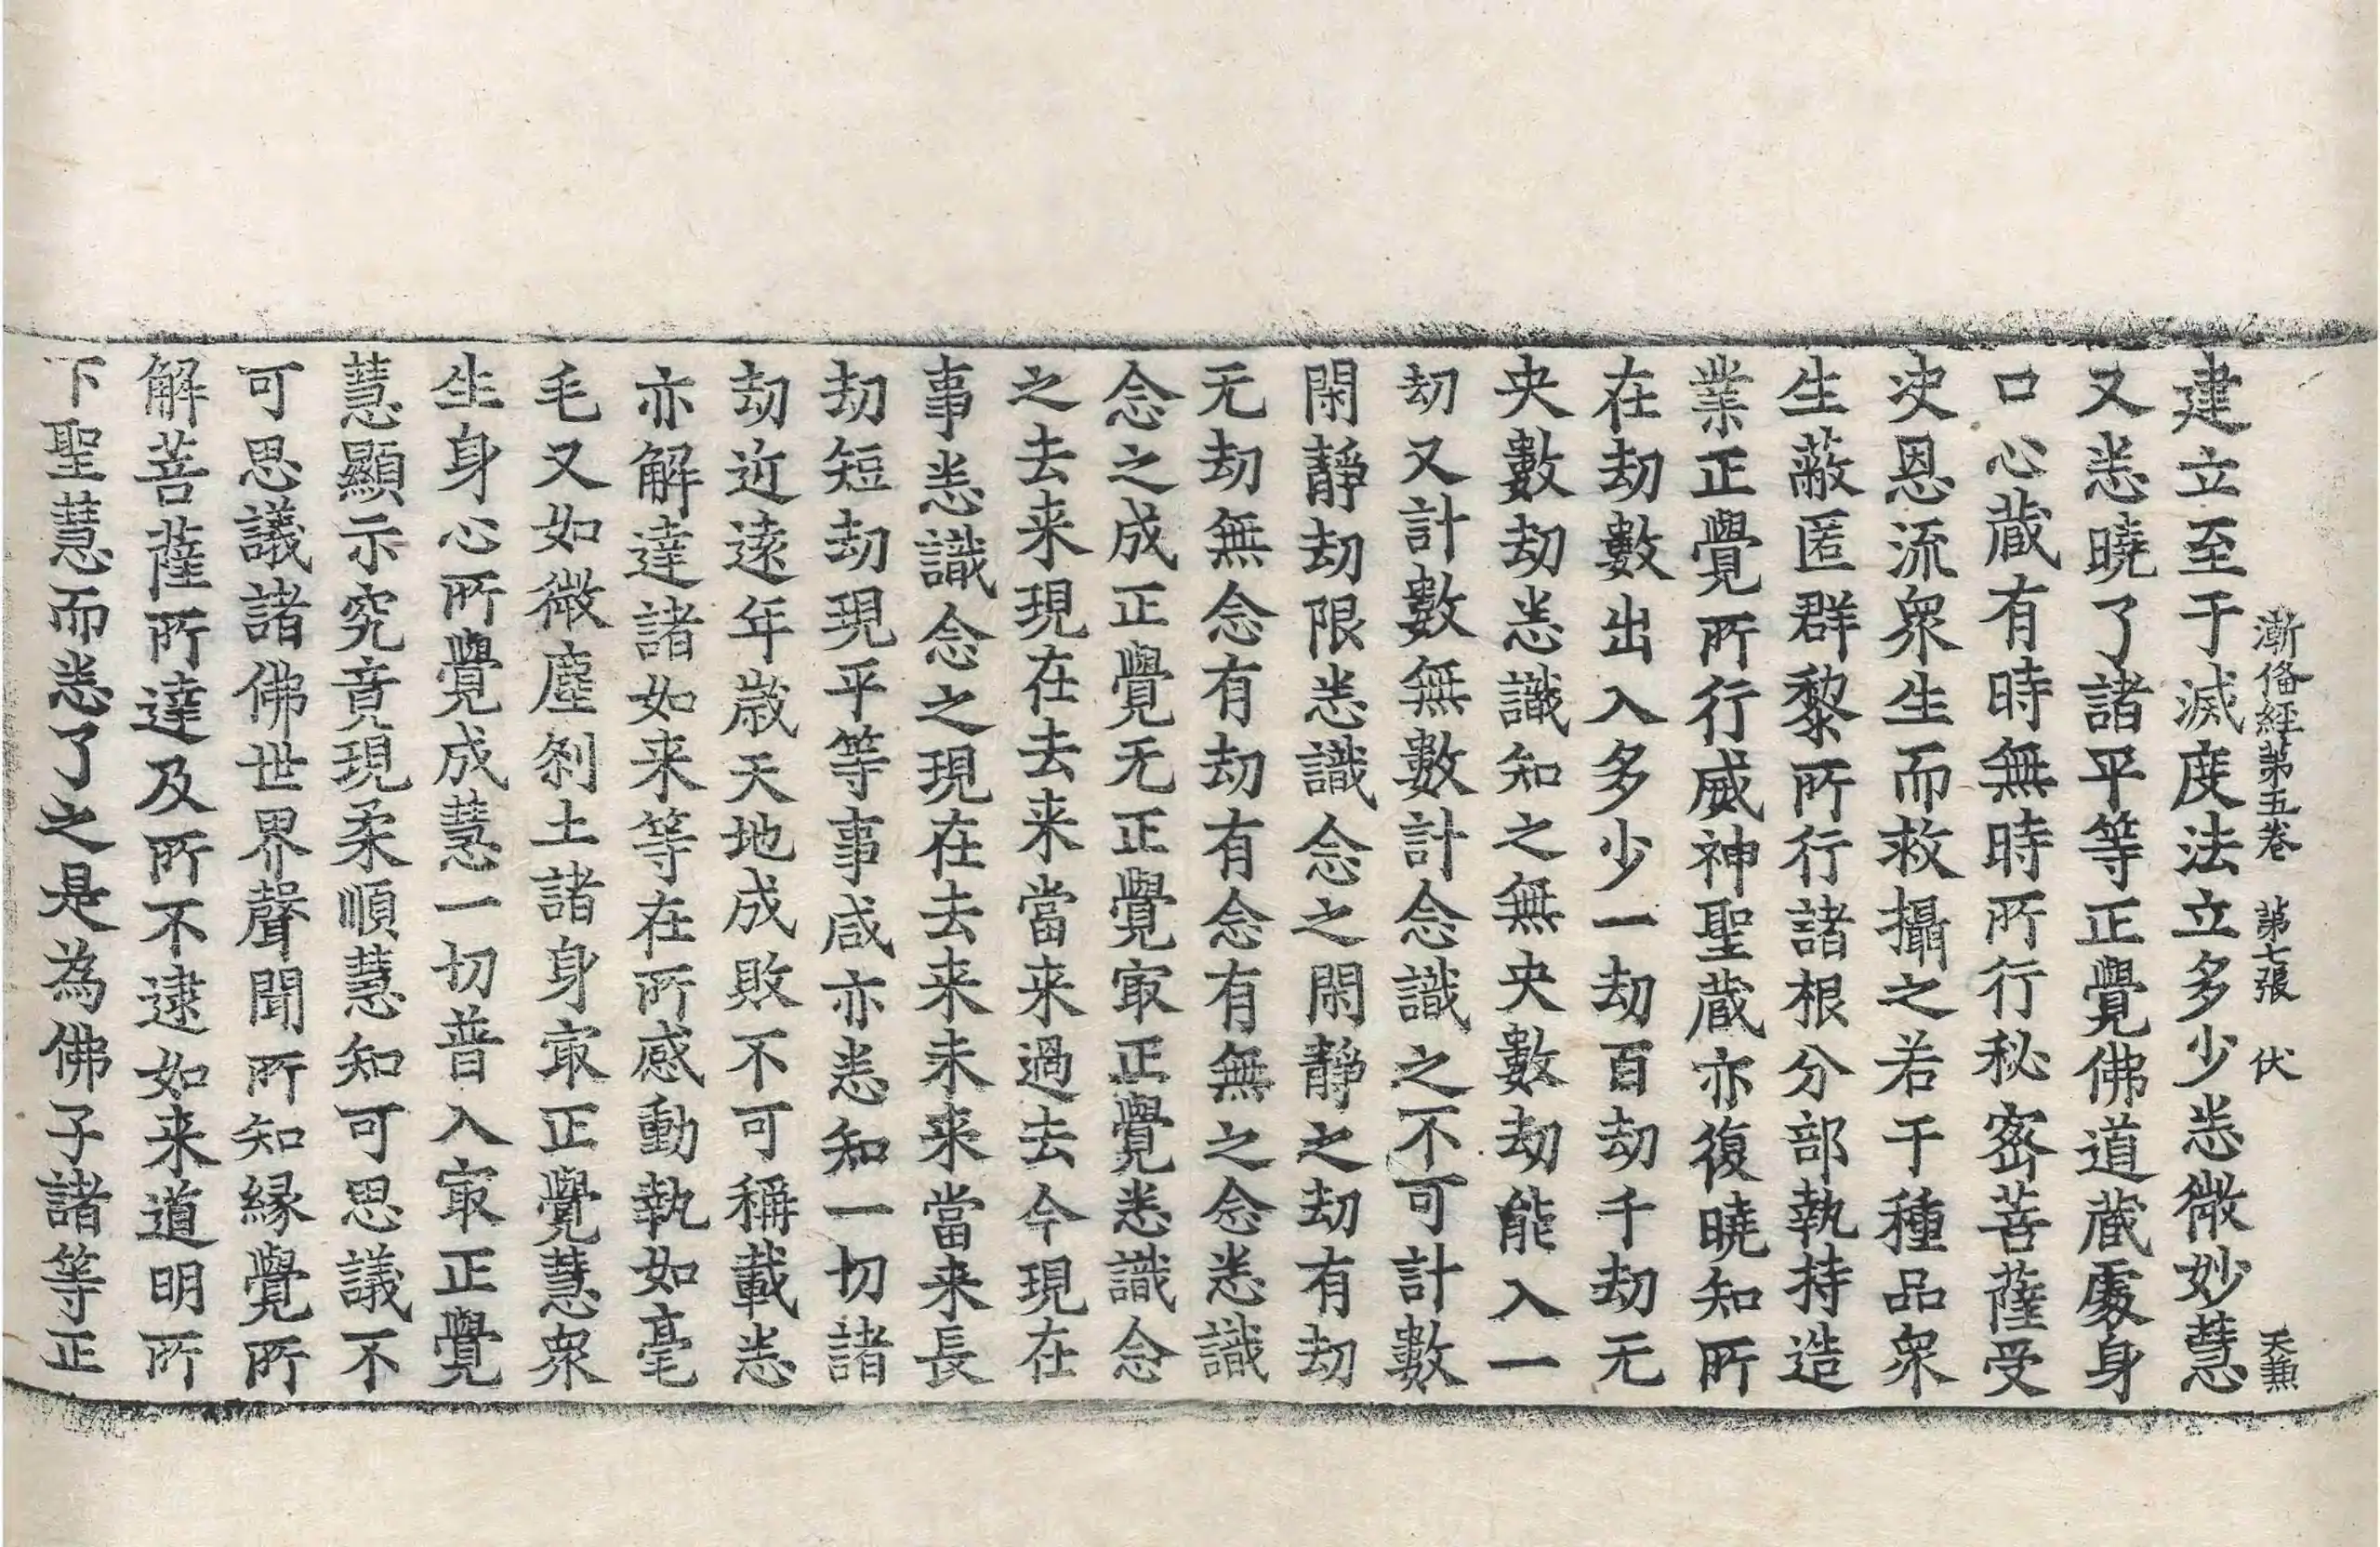 漸俻經第五卷 第七張 伏 天兼
建立至于滅度法立多少悉微妙慧
又悉曉了諸平等正覺佛道蔵處身
口心蔵有時無時所行秘密菩薩受
决恩流衆生而救攝之若干種品衆
生蔽匿群黎所行諸根分部執持造
業正覺所行威神聖蔵亦復曉知所
在劫數出入多少一劫百劫千劫无
央數劫悉識知之無央數劫能入一
劫又計數無數計念識之不可計數
閑靜劫限悉識念之閑靜之劫有劫
无劫無念有劫有念有無之念悉識
念之成正覺无正覺冣正覺悉識念
之去来現在去来當来過去今現在
事悉識念之現在去来未来當来長
劫短劫現平等事咸亦悉知一切諸
劫近逺年歳天地成敗不可稱載悉
亦解達諸如来等在所感動執如毫
毛又如微塵刹土諸身冣正覺慧衆
生身心所覺成慧一切普入冣正覺
慧顯示究竟現柔順慧知可思議不
可思議諸佛世界聲聞所知縁覺所
解菩薩所達及所不逮如来道明所
下聖慧而悉了之是為佛子諸等正